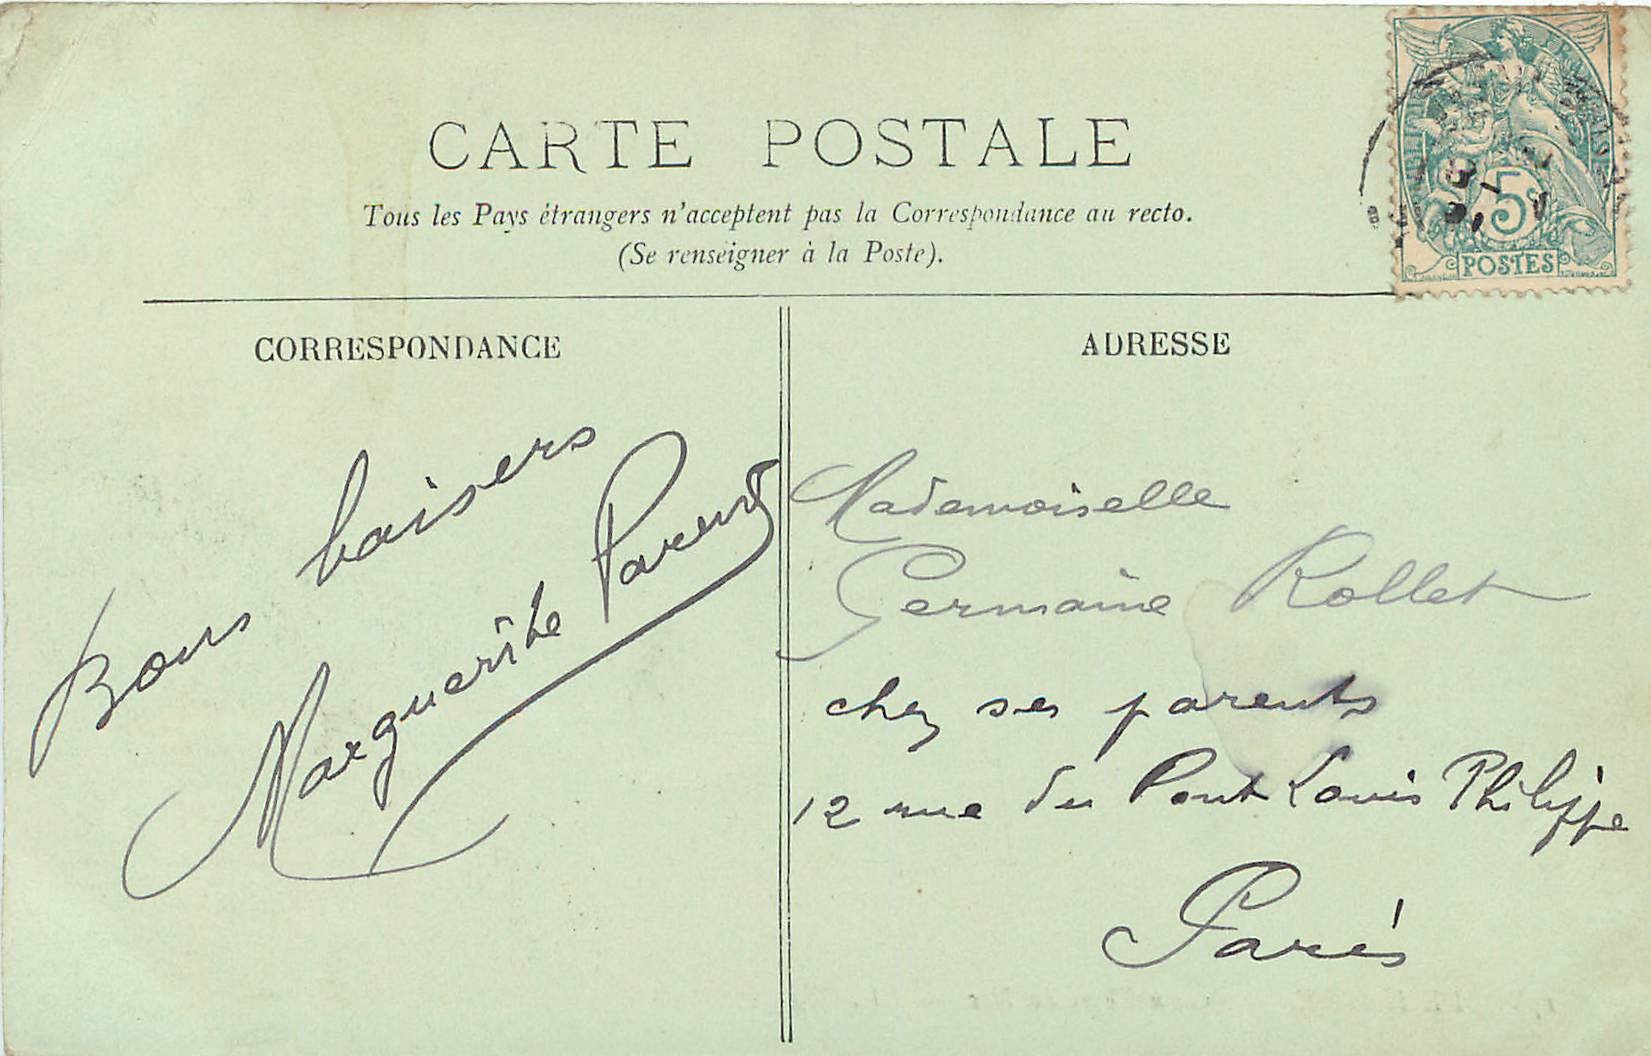 CARTE POSTALE
Tous les Pays étrangers n'acceptent pas la Correspondance au recto.
(Se renseigner à la Poste).
5c
POSTES
CORRESPONDANCE
Bons baisers
Marguerite Parent
ADRESSE
Mademoiselle
Germaine Rollet
chez ses parents
12 rue du Pont Louis Philippe
Paris